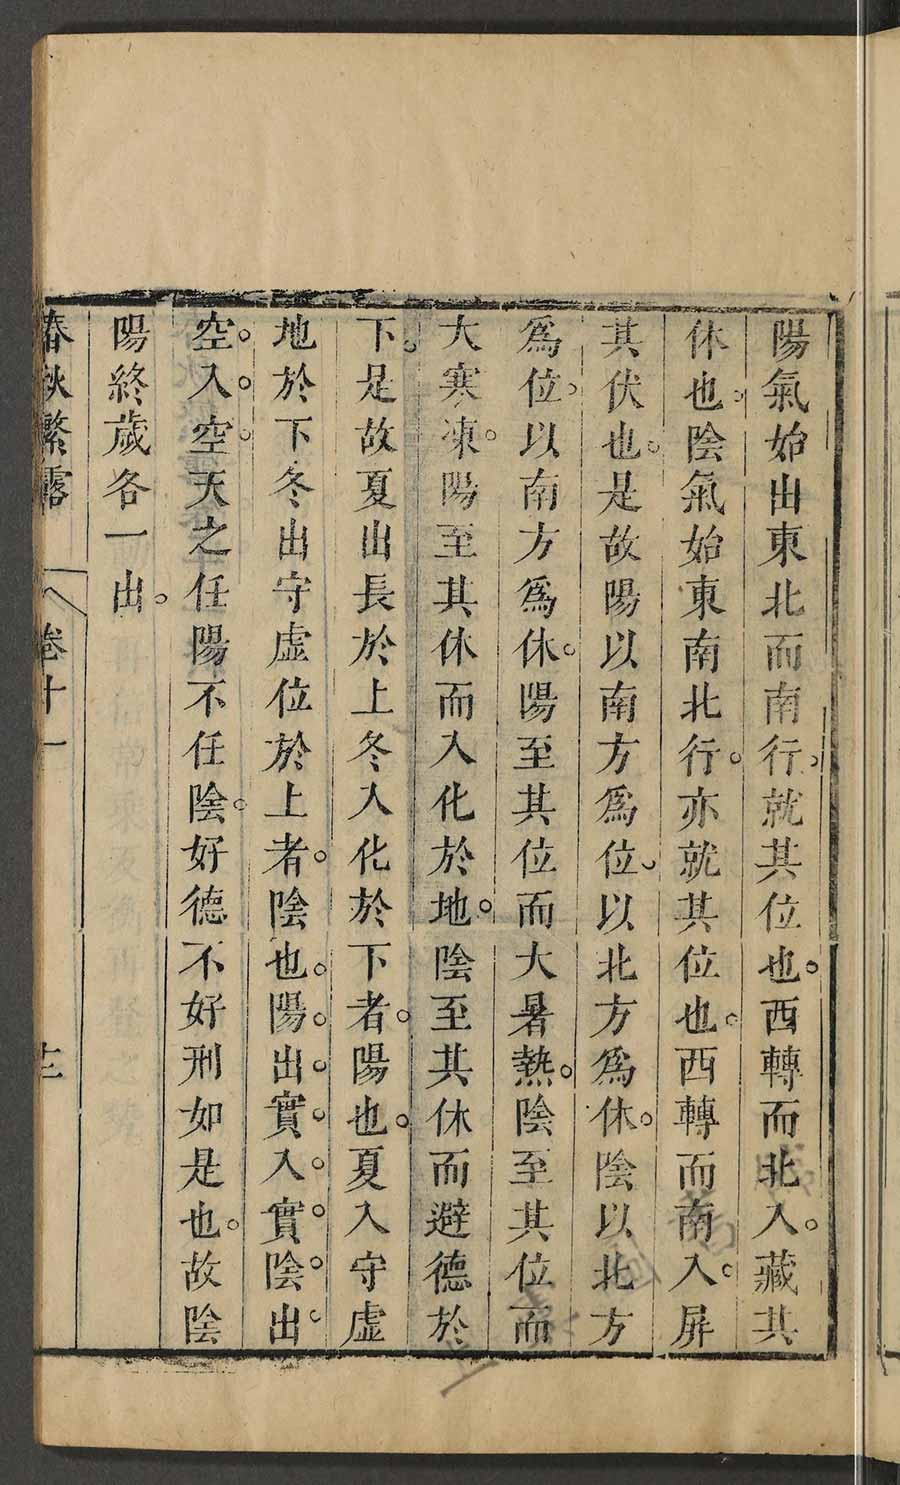 陽氣始出東北而南行。就其位也。西轉而北入。藏其
休也。陰氣始東南北行。亦就其位也。西轉而南入。屏
其伏也。是故陽以南方爲位。以北方爲休。陰以北方
爲位。以南方爲休。陽至其位而大暑熱。陰至其位而
大寒凍。陽至其休而入化於地。陰至其休而避德於
下。是故夏出長於上冬入化於下者。陽也。夏入守虛
地於下冬出守虛位於上者。陰也。陽。出。實。入。實。陰。出。
空。入。空。天之任陽不任陰。好德不好刑如是也。故陰
陽終歲各一出。
春秋繁露 卷十一 十二